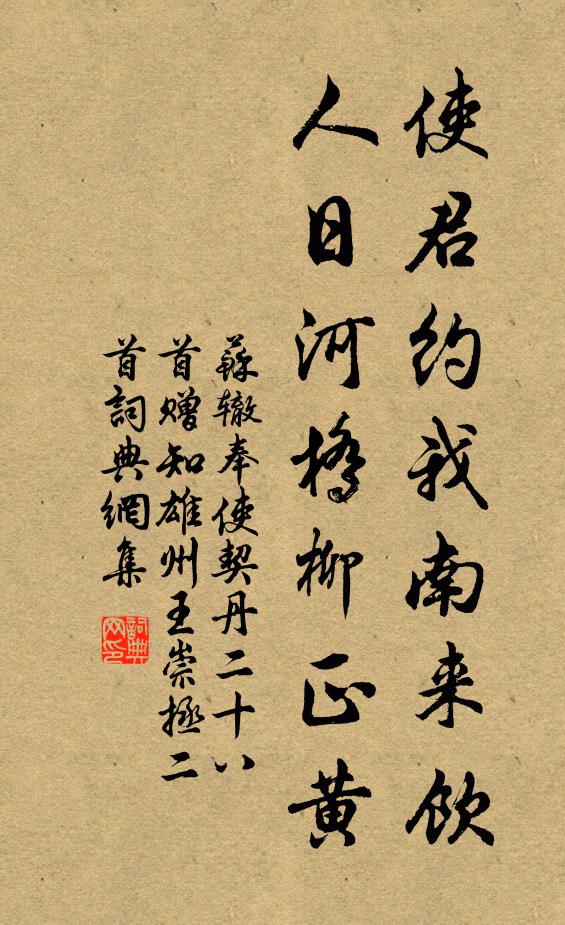 使君约我南来饮
人日河桥柳正黄
蘇辙奉使契丹二十八
首赠知雄州王崇拯二
首詞典網集
詞典网印